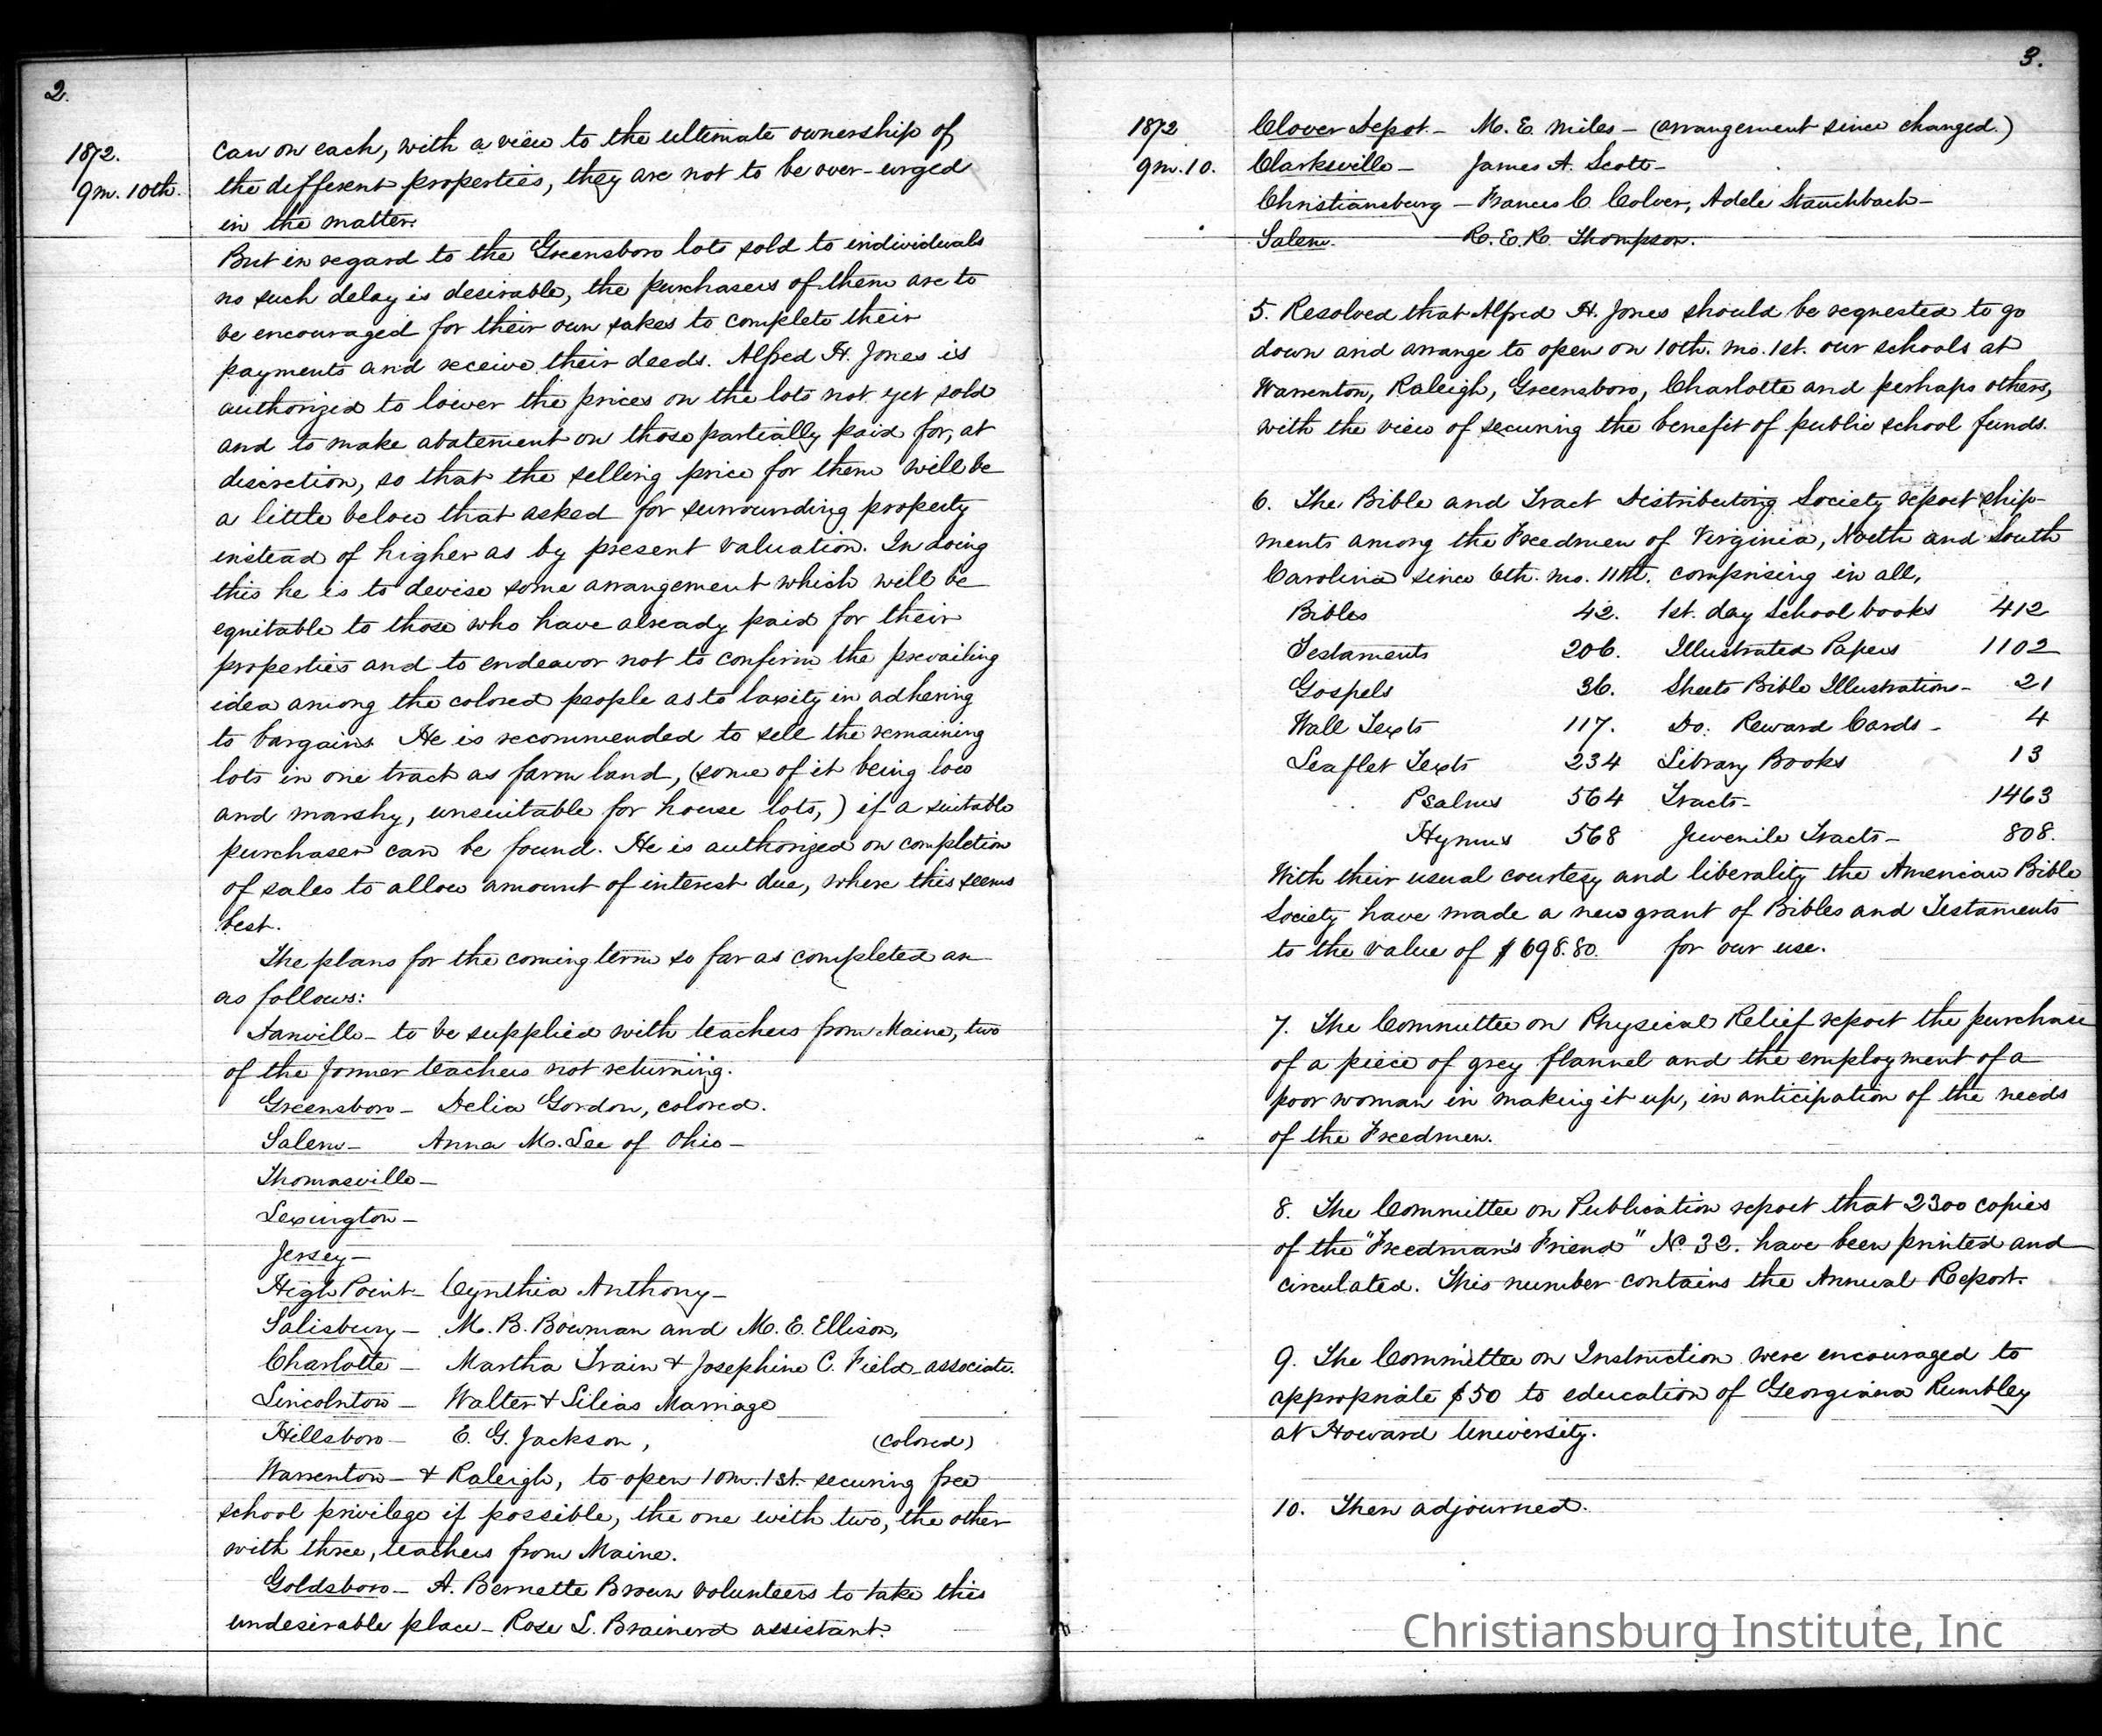 2.
1872.
9m. 10th.
can on each, with a view to the ultimate ownership of
the different properties, they are not to be over-urged
in the matter.
But in regard to the Greensboro lots sold to individuals
no such delay is desirable, the purchasers of them are to
be encouraged for their own sakes to complete their
payments and receive their deeds. Alfred H. Jones is
authorized to lower the prices on the lots not yet sold
and to make abatement on those partially paid for, at
discretion, so that the selling price for them will be
a little below that asked for surrounding property
instead of higher as by present valuation. In doing
this he is to devise some arrangement which will be
equitable to those who have already paid for their
properties and to endeavor not to confirm the prevailing
idea among the colored people as to laxity in adhering
to bargains. He is recommended to sell the remaining
lots in one tract as farm land, (some of it being low
and marshy, unsuitable for house lots,) if a suitable
purchaser can be found. He is authorized on completion
of sales to allow amount of interest due, where this seems
best.
The plans for the coming term so far as completed are
as follows:
Danville - to be supplied with teachers from Maine, two
of the former teachers not returning.
Greensboro - Delia Gordon, colored.
Salem - Anna M. Lee of Ohio -
Thomasville -
Lexington -
Jersey -
High Point - Cynthia Anthony -
Salisbury - M. B. Bowman and M. E. Ellison,
Charlotte - Martha Train & Josephine C. Field - associate.
Lincolnton - Walter & Lilias Marriage
Hillsboro - E. G. Jackson, (colored)
Warrenton - & Raleigh, to open 10m. 1st. securing free
school privilege if possible, the one with two, the other
with three, teachers from Maine.
Goldsboro - A. Bernette Brown volunteers to take this
undesirable place - Rose L. Brainerd assistant.
3.
1872
9m. 10.
Clover Depot. - M. E. Miles - (arrangement since changed.)
Clarksville - James A. Scott -
Christiansburg - Frances C. Colver, Adele Stauchbach -
Salem. R. E. R. Thompson.
5. Resolved that Alfred H. Jones should be requested to go
down and arrange to open on 10th. mo. 1st. our schools at
Warrenton, Raleigh, Greensboro, Charlotte and perhaps others,
with the view of securing the benefit of public school funds.
6. The Bible and Tract Distributing Society report ship-
ments among the Freedmen of Virginia, North and South
Carolina since 6th. mo. 11th. comprising in all,
Bibles 42. 1st. day School books 412
Testaments 206. Illustrated Papers 1102
Gospels 36. Sheets Bible Illustrations - 21
Wall Texts 117. Do. Reward Cards - 4
Leaflet Texts 234 Library Books 13
Psalms 564 Tracts - 1463
Hymns 568 Juvenile Tracts - 808.
With their usual courtesy and liberality the American Bible
Society have made a new grant of Bibles and Testaments
to the value of $698.80. for our use.
7. The Committee on Physical Relief report the purchase
of a piece of grey flannel and the employment of a
poor woman in making it up, in anticipation of the needs
of the Freedmen.
8. The Committee on Publication report that 2300 copies
of the "Freedman's Friend" No. 32. have been printed and
circulated. This number contains the Annual Report.
9. The Committee on Instruction were encouraged to
appropriate $50 to education of Georgiana Rumbley
at Howard University.
10. Then adjourned.
Christiansburg Institute, Inc